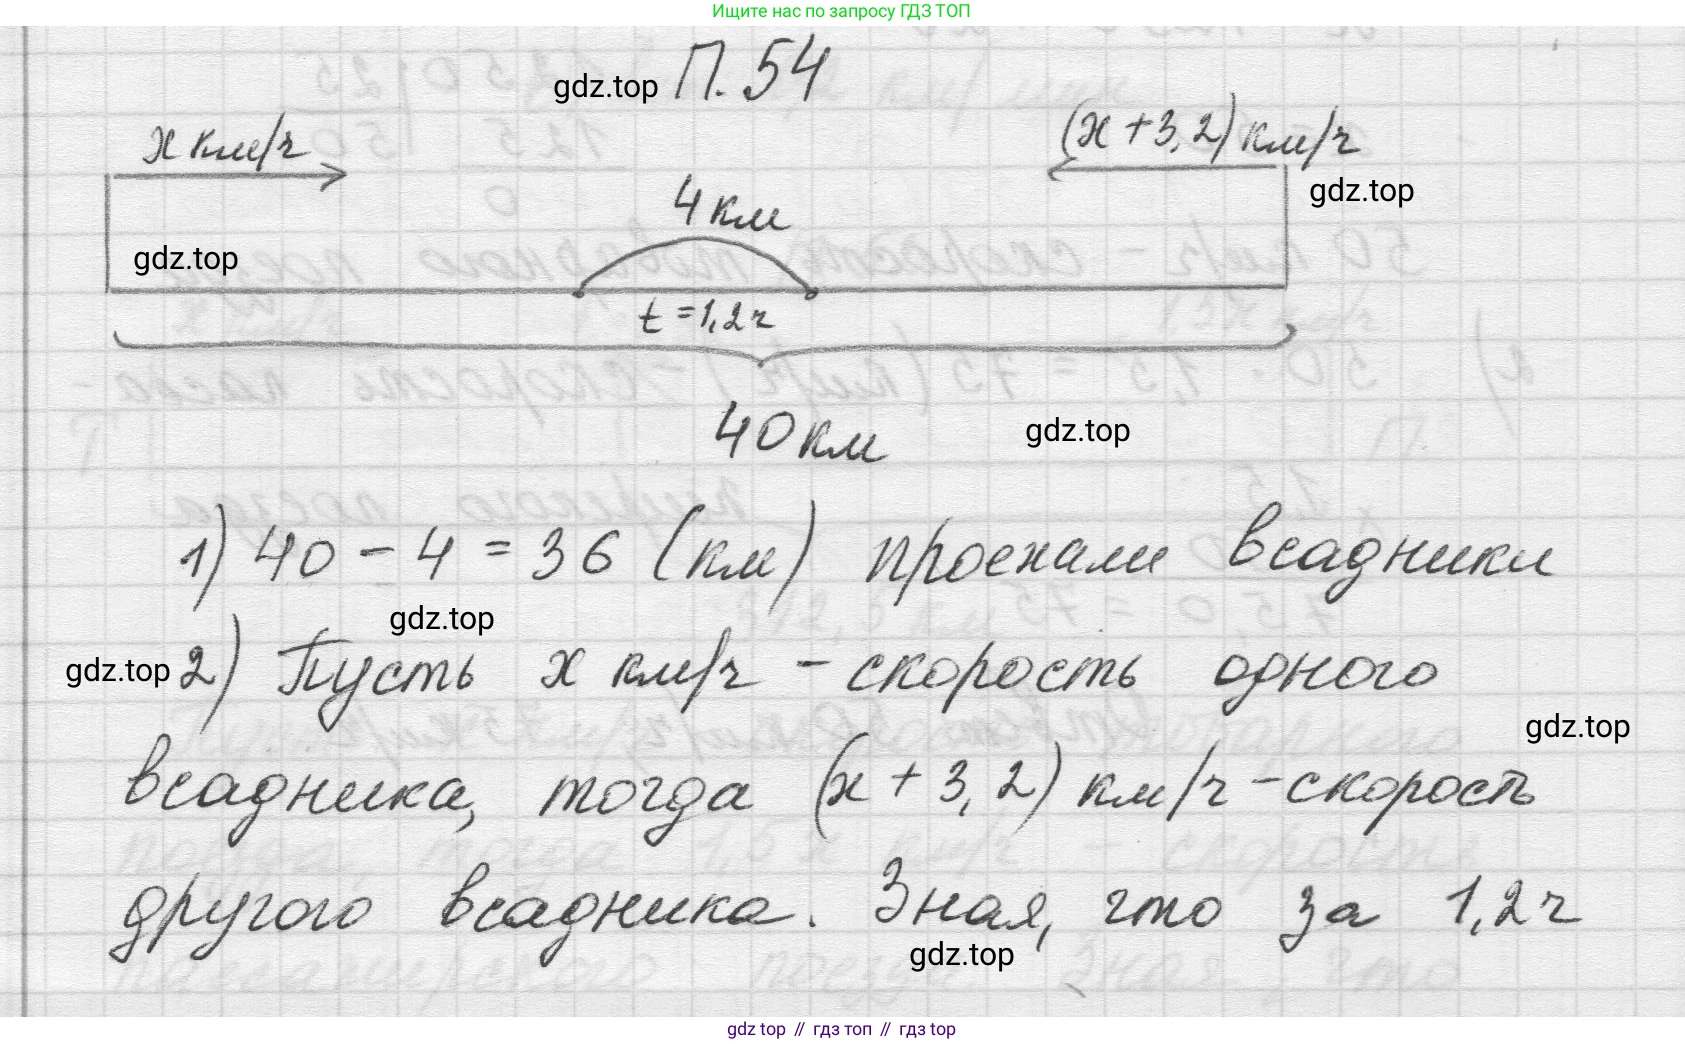 Ищите нас по запросу ГДЗ ТОП
gdz.top П.54
x км/ч
(x + 3,2) км/ч
gdz.top
4 км
gdz.top
t = 1,2 ч
40 км
gdz.top
1) 40 - 4 = 36 (км) проехали всадники
gdz.top
gdz.top 2) Пусть x км/ч - скорость одного
gdz.top
всадника, тогда (x + 3,2) км/ч - скорость
другого всадника. Зная, что за 1,2 ч
gdz.top
gdz top // гдз топ // гдз top